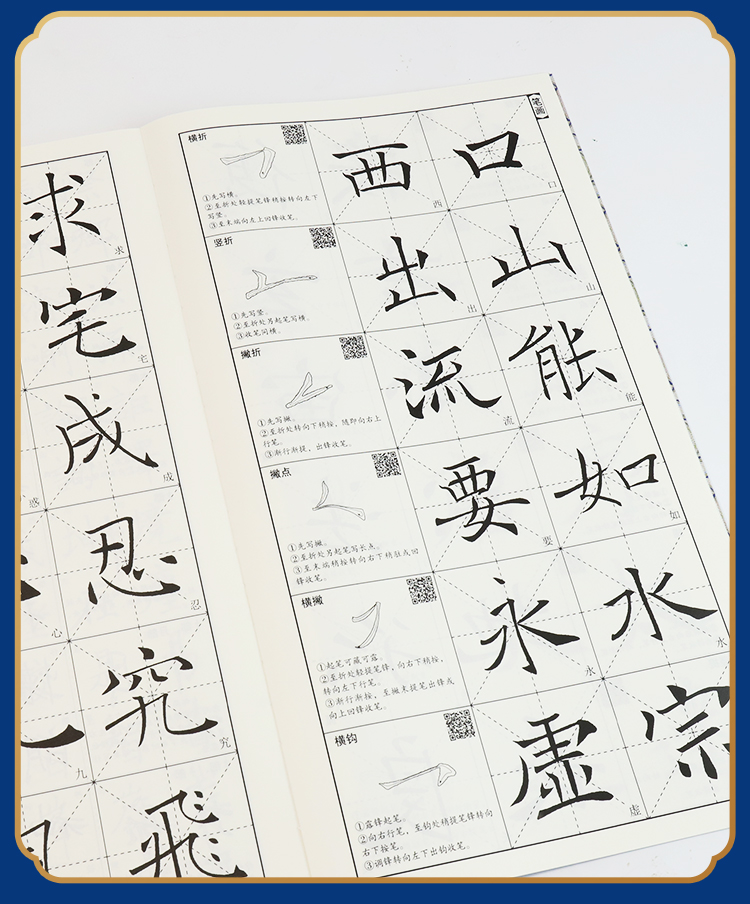 笔画
横折
①先写横。
②至折处轻提笔锋稍按转向左下
写竖。
③至末端向左上回锋收笔。
西 西
口 口
竖折
①先写竖。
②至折处另起笔写横。
③收笔同横。
出 出
山 山
撇折
①先写撇。
②至折处转向下稍按，随即向右上
行笔。
③渐行渐提，出锋收笔。
流 流
能 能
撇点
①先写撇。
②至折处另起笔写长点。
③至末端稍按转向右下稍驻或回
锋收笔。
要 要
如 如
横撇
①起笔可藏可露。
②至折处轻提笔锋，向右下稍按，
转向左下行笔。
③渐行渐按，至撇末提笔出锋或
向上回锋收笔。
永
水 水
横钩
①露锋起笔。
②向右行笔，至钩处稍提笔锋转向
右下按笔。
③调锋转向左下出钩收笔。
虚 虚
宗
求 求
宅 宅
惑
成 成
心
忍 忍
九
究 究
飛